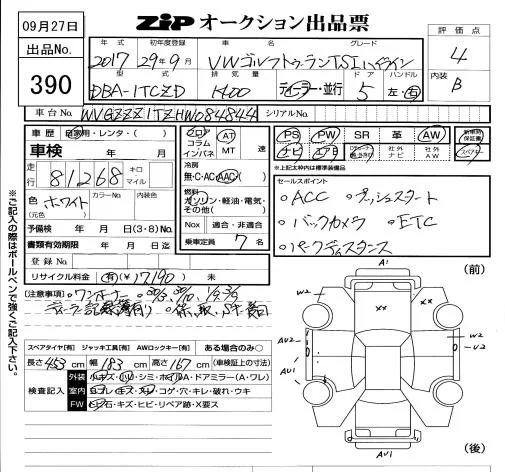 09月27日
出品No.
390
ZiP オークション出品票
評価点
4
内装
B
年式 初年度登録 車名 グレード
2017 29年9月 VWゴルフトゥーランTSIハイライン
型式 排気量 ドア ハンドル
DBA-1TCZD 1400 ディーラー・並行 5 左・右
車台No. WVGZZZ1TZHW084844 シリアルNo.
車歴 自家用・レンタ・( )
車検 年 月
走行 81268 キロ マイル
色 ホワイト カラーNo. 内装色
(元色)
予備検 年 月 日(3・8)No.
書類有効期限 年 月 日迄
登録No.
リサイクル料金 有(¥17,190) 未
フロア コラム インパネ AT MT 速
冷房
無・C・AC・AAC
燃料
ガソリン・軽油・電気・その他( )
Nox 適合・非適合
乗車定員 7 名
PS PW SR 革 AW 新車時保証書
ナビ エアB 社外ナビ 社外AW スペアキー
※上記太わ枠内は標準装備品
セールスポイント
・ACC ・プッシュスタート
・バックカメラ ・ETC
・パークディスタンス
(注意事項) ・ワンオーナー
ディーラー記録簿有り ・保、取、Sキー
スペアタイヤ【有】 ジャッキ工具【有】 AWロックキー【有】 ある場合のみ○
長さ 453 cm 幅 183 cm 高さ 167 cm (車検証上の寸法)
検査記入 外装 小キズ・小凹・シミ・ホイルA・ドアミラー(A・ワレ)
室内 コゲ・穴・キレ・破れ・ウキ
FW 石・キズ・ヒビ・リペア跡・X要ス
※ご記入の際はボールペンで強くご記入下さい。
(前)
A1
W2
XX
XX
AU2
W2
U2
AU1
AU1
(後)